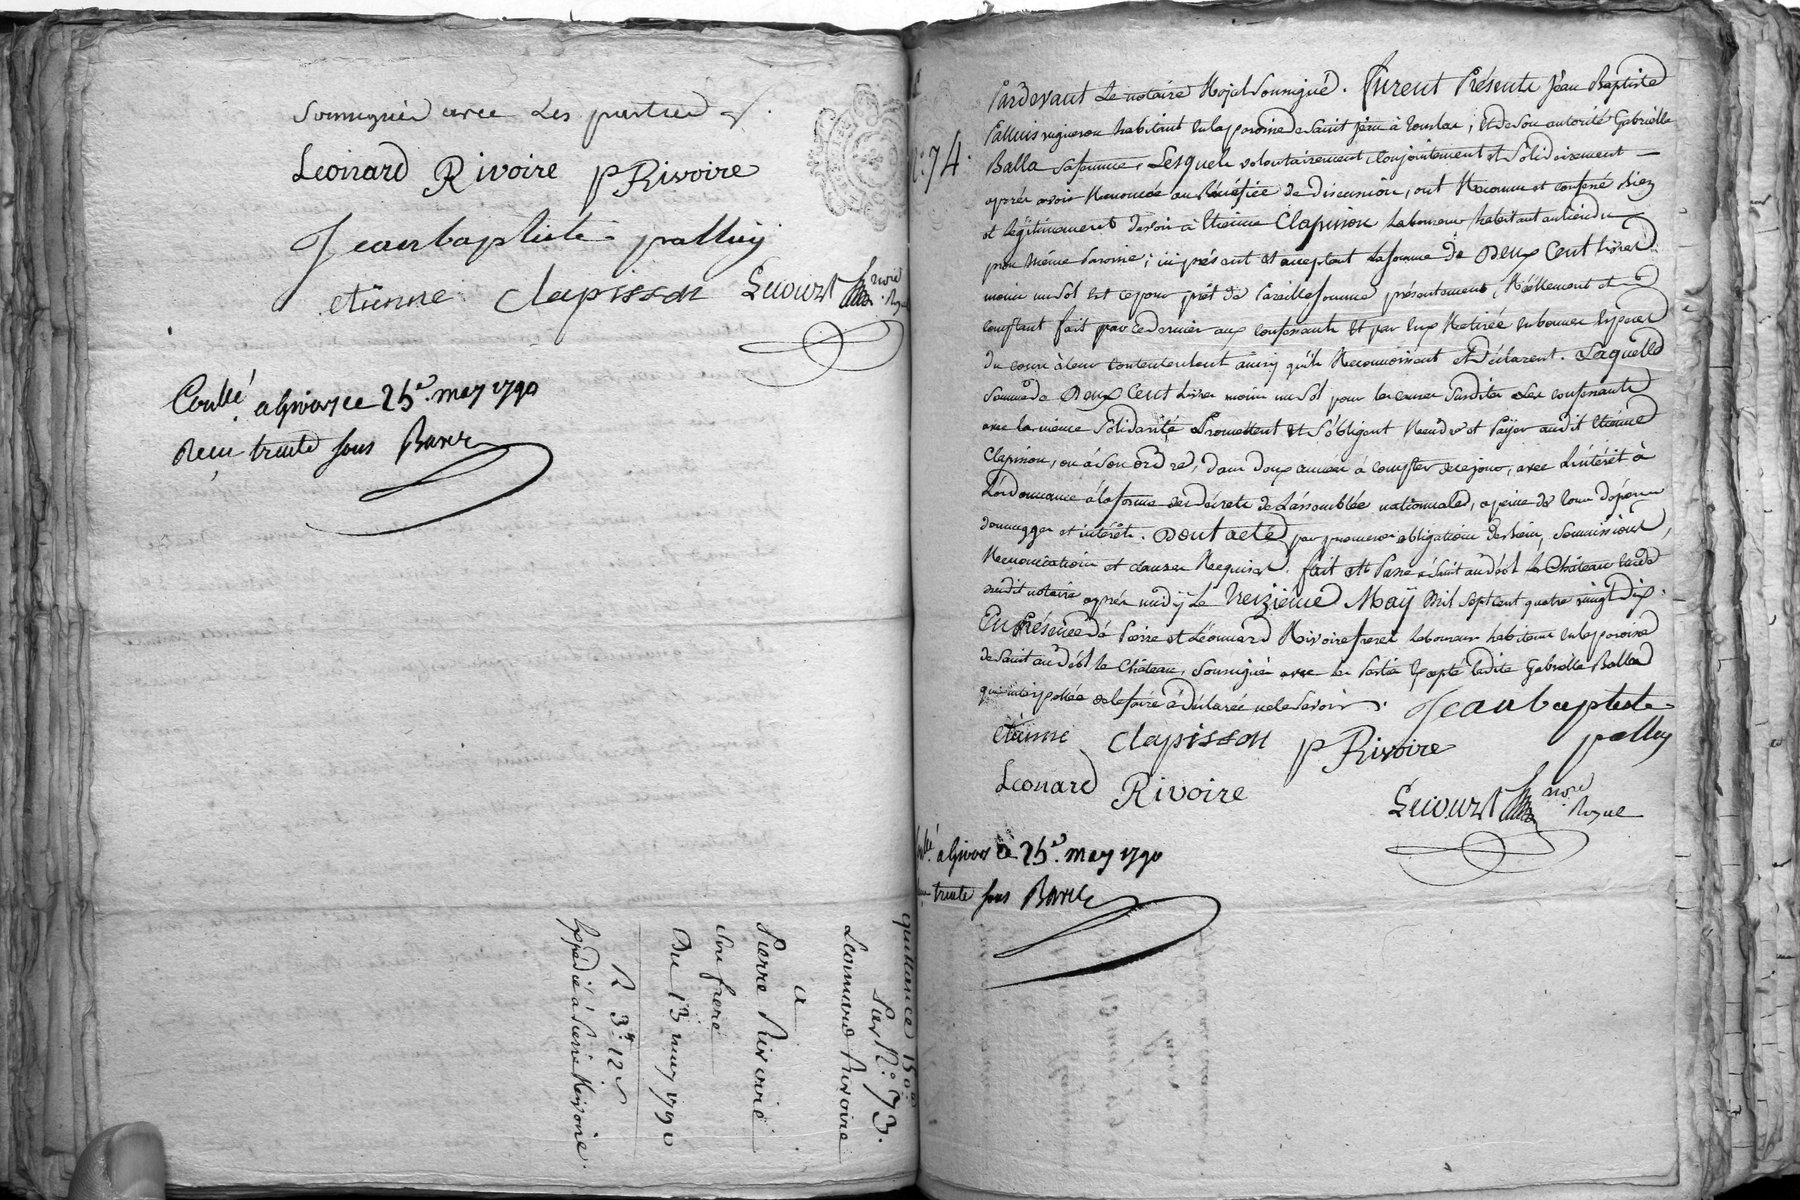 soussignés avec les parties
Leonard Rivoire pRivoire
Jeanbaptiste palluy
etienne clapisson Lecourt nore Royal
Conllé a Givors ce 25e may 1790
Recu trente sous Barre
quittance 150#
sur N.° 73.
Léonnard Rivoire
a
Pierre Rivoire
son frere
Du 13 may 1790
R 3# 12s
Expédié à Pierre Rivoire.
N.° 74.
Pardevant Le notaire Royal soussigné. Furent Présents Jean Baptiste
Palluis vigneron habitant en la paroisse de Saint jean à toulas ; Et de son autorité Gabrielle
Balla sa femme, Lesquels volontairement, conjointement et solidairement —
après avoir Renoncé au Bénéfice de discussion, ont Reconnu et confessé Bien
et légitimement devoir à Etienne Clapisson Laboureur habitant au lieu du
même Paroisse ; ici présent et acceptant la somme de Deux Cent livres
moins un sol Et ce pour prêt de Pareille somme présentement, Réellement et
comptant fait par ce dernier aux confessants Et par Eux Retirée en bonnes Espèces
du cours à leur contentement ainsy qu'ils Reconnoissent et Déclarent. Laquelle
somme de Deux Cent Livres moins un sol pour les causes susdites Les confessants
avec la même solidarité Promettent et s'obligent Rendre et Payer audit Etienne
Clapisson, ou à son ordre, dans deux années à compter de ce jour, avec L'intérêt à
L'ordonnance à la forme des décrets de L'assemblée nationnale, a peine de tous dépens
dommages et intérêts. Dont acte, par promesses obligation des biens, soumissions,
Renonciations et clauses Requises. fait et Passé à Saint andéol le Château Etude
dudit notaire après midÿ Le treizieme Maÿ Mil sept cent quatre vingt Dix.
En Présence de Pierre et Léonnard Rivoire freres Laboureurs habitans en la paroisse
de Saint andéol le Château, soussignés avec les Parties Excepté ladite Gabrielle Balla
qui interpellée de le faire à Déclarée ne le savoir. Jeanbaptiste
etienne clapisson pRivoire palluy
Leonard Rivoire Lecourt nore Royal
a Givors ce 25e may 1790
trente sous Barre